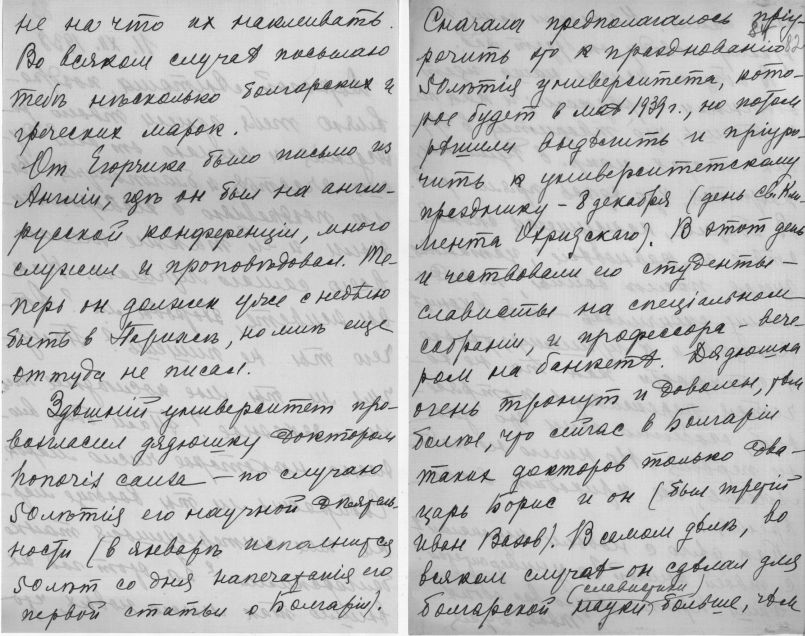 не на что их наклеивать.
Во всяком случаѣ посылаю
тебѣ нѣсколько болгарских и
греческих марок.
От Егорчика было письмо из
Англіи, гдѣ он был на англо-
русской конференціи, много
служил и проповѣдовал. Те-
перь он должен уже с недѣлю
быть в Парижѣ, но мнѣ еще
оттуда не писал.
Здѣшній университет про-
возгласил дядюшку доктором
honoris causa – по случаю
50лѣтія его научной дѣятель-
ности (в январѣ исполнится
50 лѣт со дня напечатанія его
первой статьи о Болгаріи).
Сначала предполагалось пріу-
рочить это к празднованію
82
50лѣтія университета, кото-
рое будет в маѣ 1939 г., но потом
рѣшили выдѣлить и пріуро-
чить к университетскому
празднику – 8 декабря (день св. Кли-
мента Охридскаго). В этот день
и чествовали его студенты –
слависты на спеціальном
собраніи, и профессора – вече
ром на банкетѣ. Дядюшка
очень тронут и доволен, тѣм
болѣе, что сейчас в Болгаріи
таких докторов только два –
царь Борис и он (был третій
Иван Вазов). В самом дѣлѣ, во
всяком случаѣ он сдѣлал для
болгарской науки (славистики) больше, чѣм